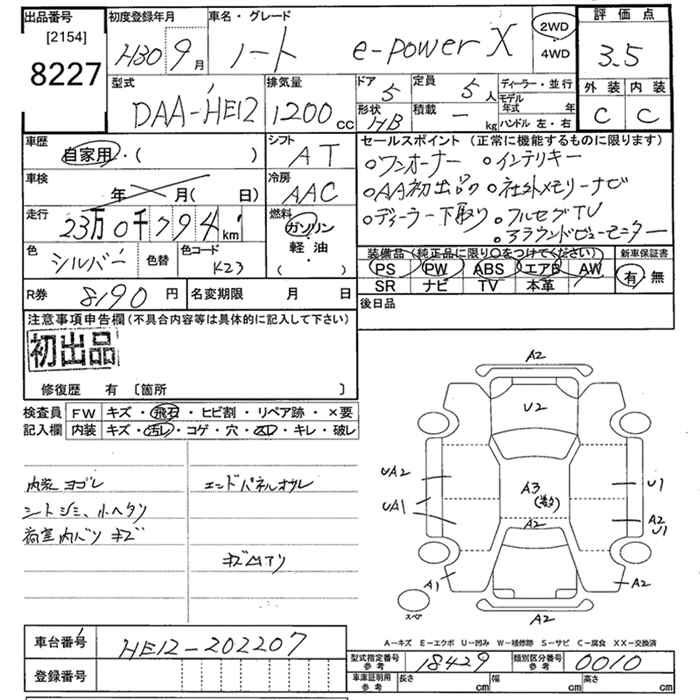 出品番号 [2154] 8227
初度登録年月 H30 9月
車名・グレード ノート e-power X
2WD・4WD
評価点 3.5
外装 C 内装 C
型式 DAA-HE12
排気量 1200cc
ドア 5 形状 HB
定員 5人 積載 - kg
ディーラー・並行
モデル年式 年
ハンドル 左・右
車歴 自家用・( )
シフト AT
セールスポイント (正常に機能するものに限ります)
○ワンオーナー ○インテリキー
○AA初出品 ○社外メモリーナビ
○ディーラー下取り ○フルセグTV
○アラウンドビューモニター
車検 年 月( 日)
冷房 AAC
走行 23万0千794km
燃料 ガソリン 軽油 ( ・ )
色 シルバー 色替 色コード K23
装備品 (純正品に限り○をつけてください)
PS PW ABS エアB AW
SR ナビ TV 本革
新車保証書 有・無
R券 8190円 名変期限 月 日
後日品
注意事項申告欄(不具合内容等は具体的に記入して下さい)
初出品
修復歴 有 〔箇所 〕
検査員記入欄
FW キズ・飛石・ヒビ割・リペア跡・×要
内装 キズ・汚レ・コゲ・穴・スレ・キレ・破レ
内装ヨゴレ エンドパネルオサレ
シートシミ、小ヘタリ
荷室内バリ キズ
キズ凹アリ
A2
U2
UA2 U1
A3
UA1
A2 A2
U1
A1 A2
スペア A2
A-キズ E-エクボ U-凹み W-補修跡 S-サビ C-腐食 XX-交換済
車台番号 HE12-202207
登録番号
型式指定番号 参考 18429 類別区分番号 参考 0010
車庫証明用 参考 長さ cm 幅 cm 高さ cm